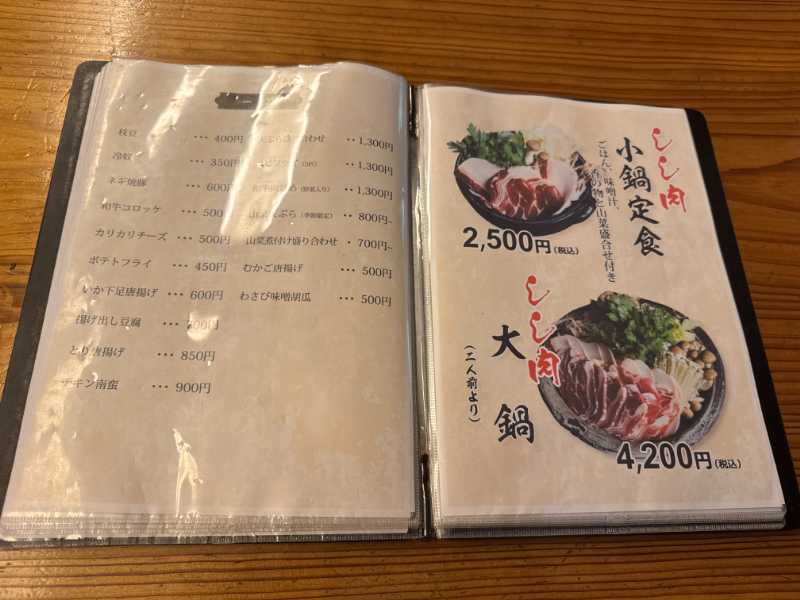 枝豆 ・・・ 400円
冷奴 ・・・ 350円
ネギ焼豚 ・・・ 600円
和牛コロッケ ・・・ 500円
カリカリチーズ ・・・ 500円
ポテトフライ ・・・ 450円
いか下足唐揚げ ・・・ 600円
揚げ出し豆腐 ・・・ 700円
とり唐揚げ ・・・ 850円
チキン南蛮 ・・・ 900円
合わせ ・・ 1,300円
・・ 1,300円
(野菜入り) ・・ 1,300円
山菜天ぷら (季節限定) ・・ 800円~
山菜煮付け盛り合わせ ・ 700円~
むかご唐揚げ ・・・ 500円
わさび味噌胡瓜 ・・・ 500円
しし肉
小鍋定食
ごはん、味噌汁、
香の物と山菜盛合せ付き
2,500円(税込)
しし肉
大鍋
(二人前より)
4,200円(税込)